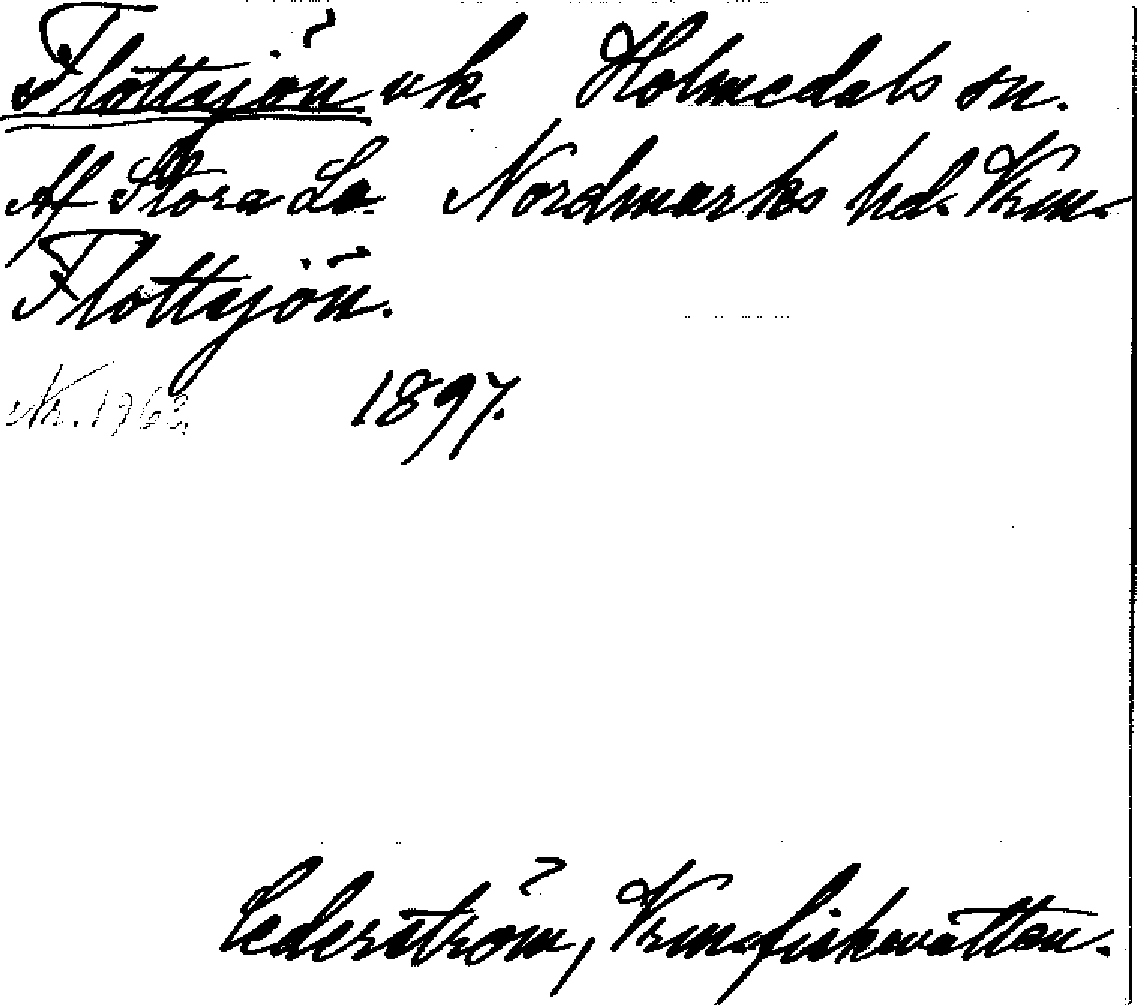 Flottsjön vk. Holmedals sn.
Af Stora Le. Nordmarks hd. Vrm.
Flottsjön.
Nr. 1963. 1897.
Cederström, Vrm. fiskevatten.